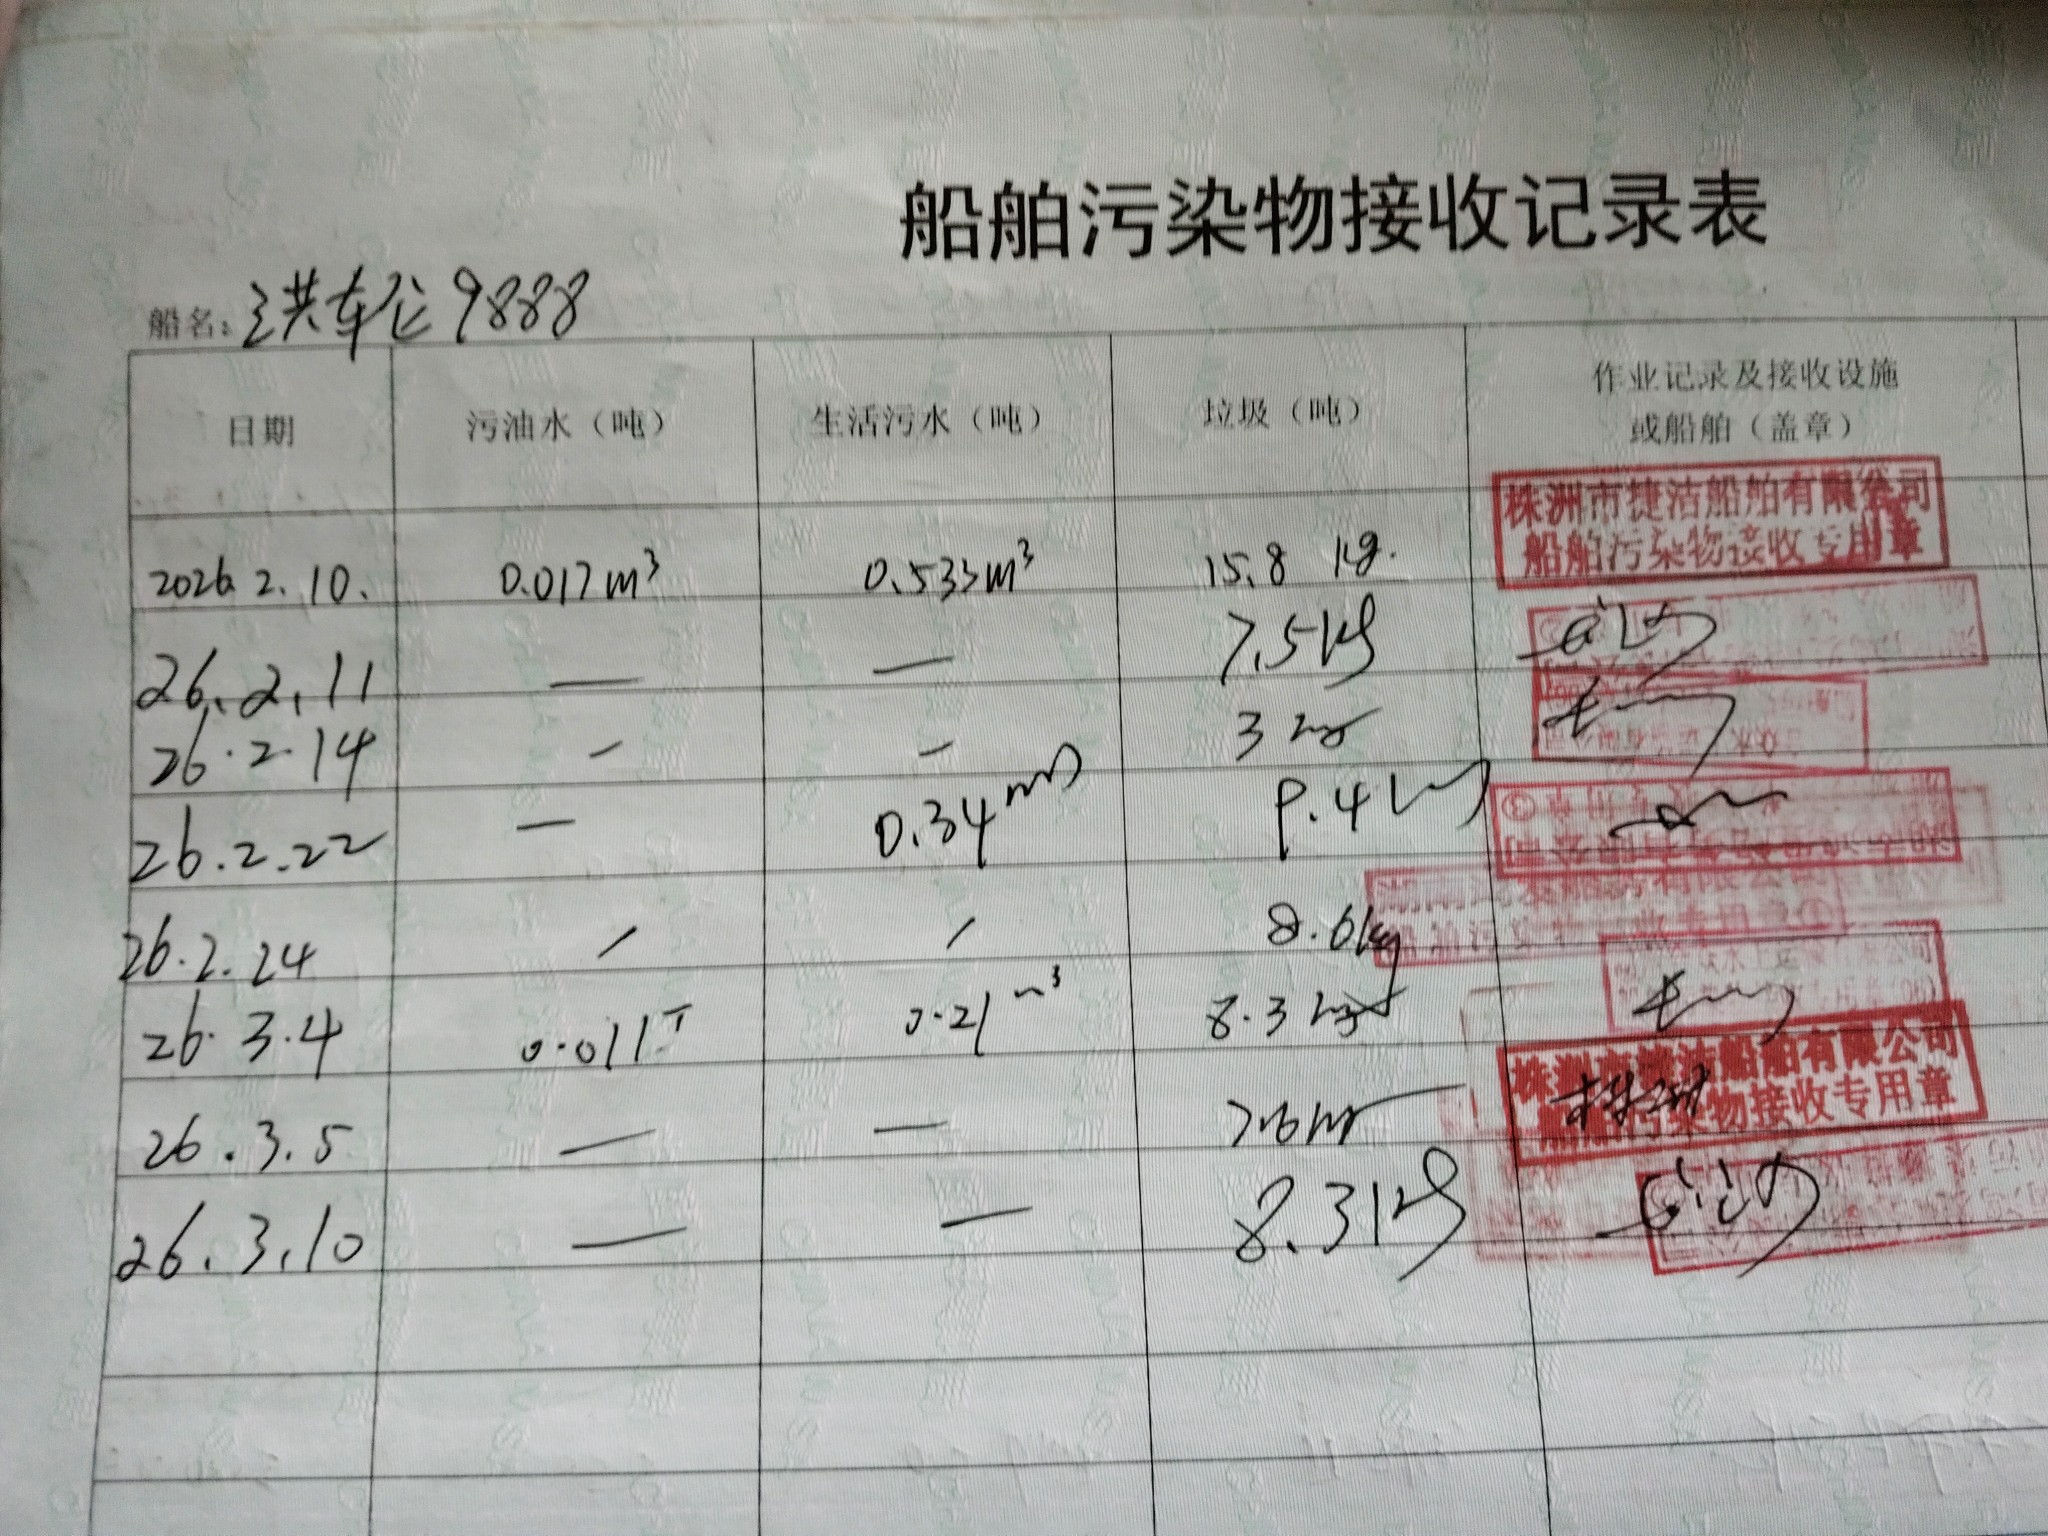 船舶污染物接收记录表
船名: 洪车伦9888
日期 污油水（吨） 生活污水（吨） 垃圾（吨） 作业记录及接收设施
或船舶（盖章）
株洲市捷洁船舶有限公司
船舶污染物接收专用章
2026.2.10. 0.017m³ 0.533m³ 15.8 kg.
26.2.11 — — 7.5kg
26.2.14 — — 3 kg
26.2.22 — 0.34m³ 9.4kg
26.2.24 / / 8.6kg
26.3.4 0.011T 0.21m³ 8.3kg
株洲市捷洁船舶有限公司
船舶污染物接收专用章
株洲
26.3.5 — — 7.6kg
26.3.10 — — 8.3kg